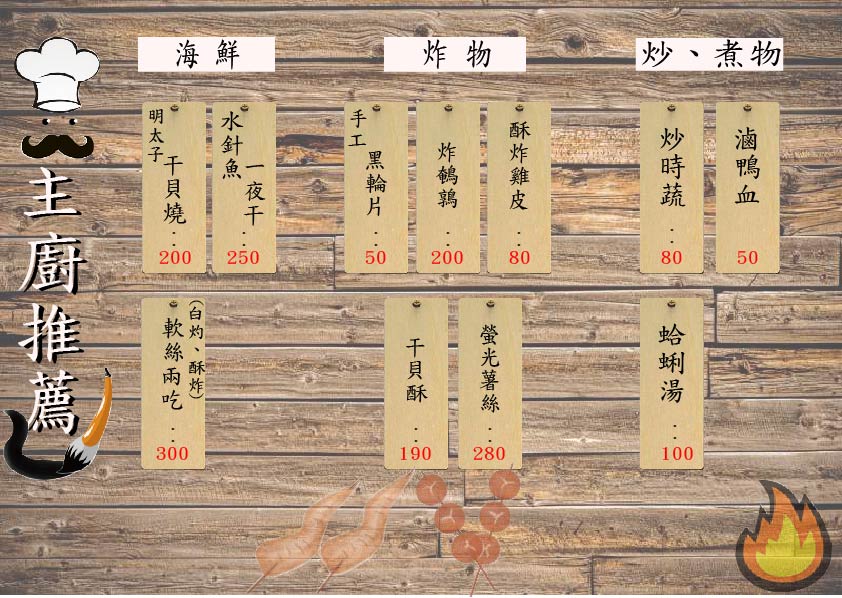 主廚推薦
海鮮
明太子干貝燒
200
水針魚一夜干
250
軟絲兩吃
(白灼、酥炸)
300
炸物
手工黑輪片
50
炸鵪鶉
200
酥炸雞皮
80
干貝酥
190
螢光薯絲
280
炒、煮物
炒時蔬
80
滷鴨血
50
蛤蜊湯
100